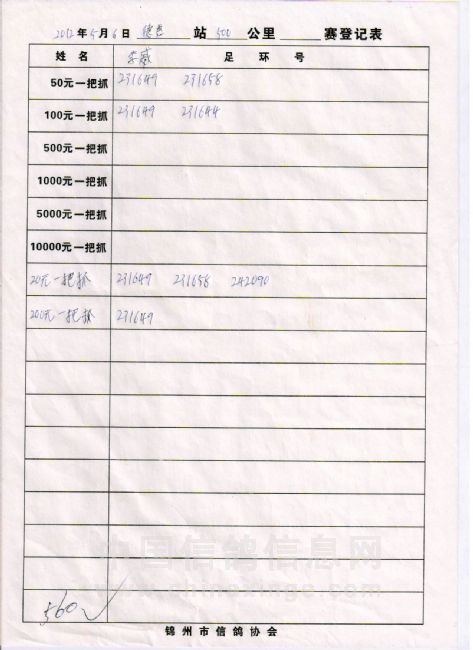 2012年5月6日 德惠 站 500 公里 赛登记表
姓名 李威 足环号
50元一把抓 231649 231658
100元一把抓 231649 231644
500元一把抓
1000元一把抓
5000元一把抓
10000元一把抓
20元一把抓 231649 231658 242090
200元一把抓 231649
中国信鸽信息网
www.chinaxinge.com
560✓
锦州市信鸽协会